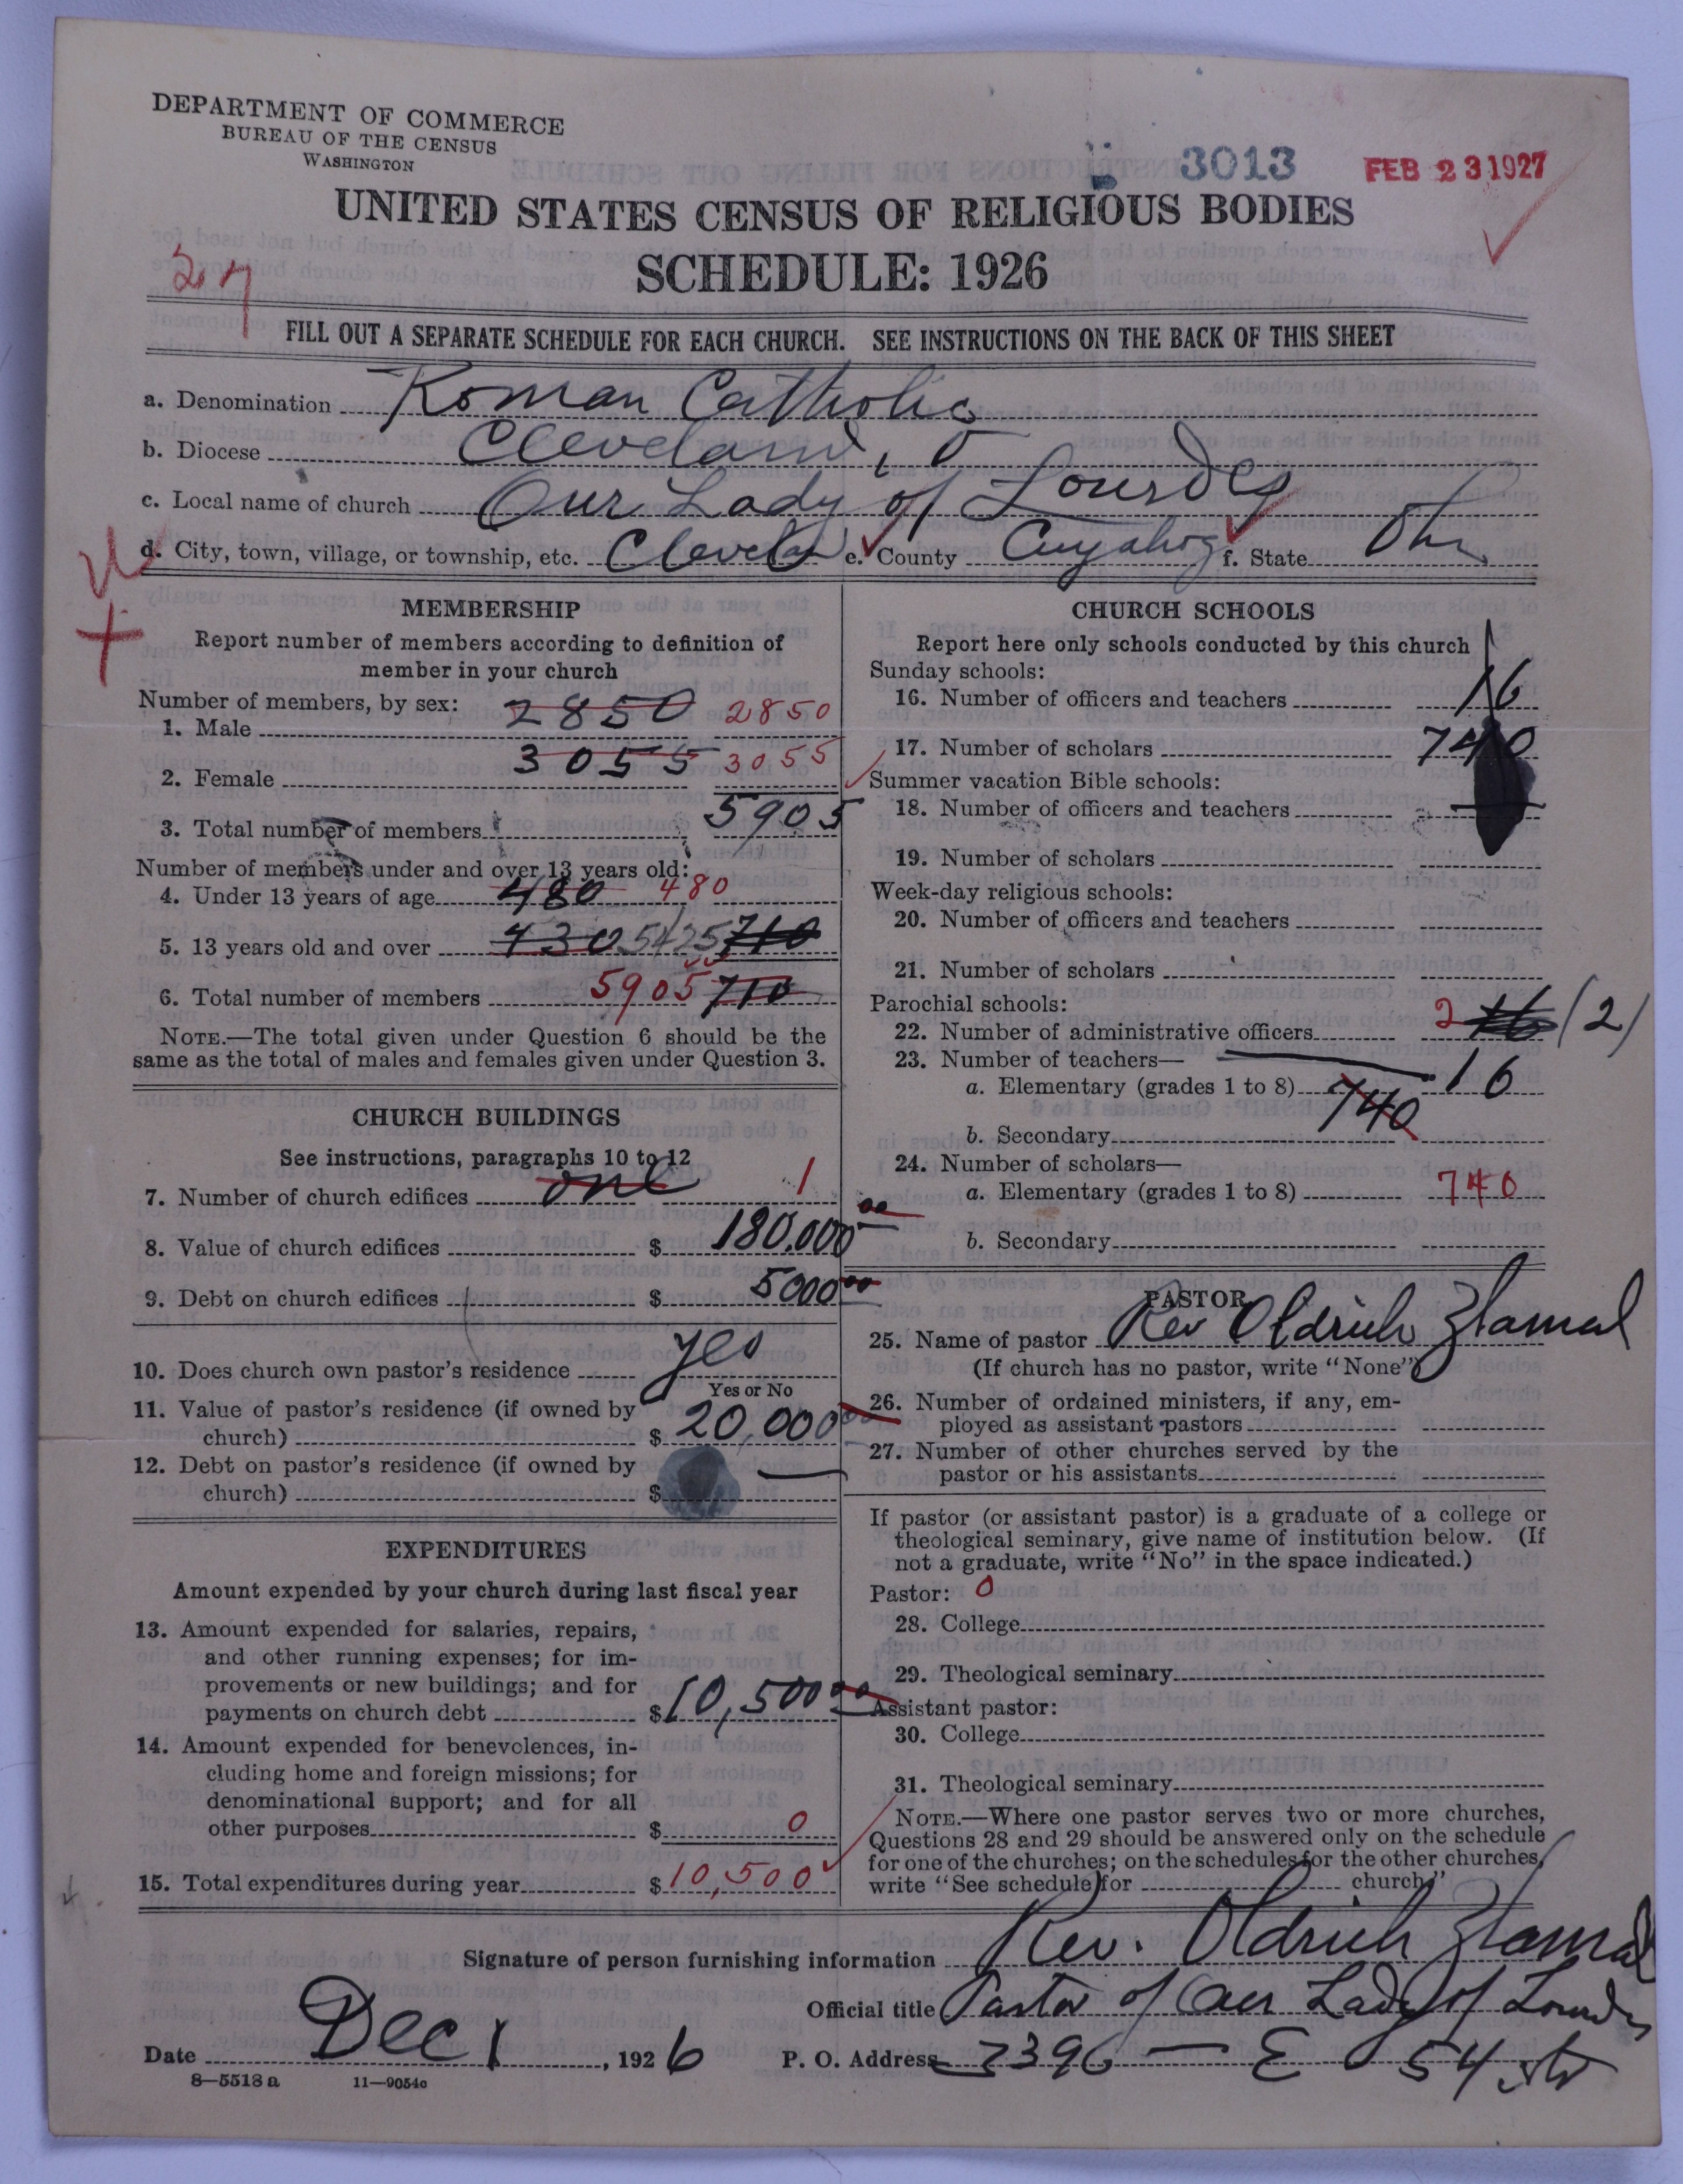 DEPARTMENT OF COMMERCE
BUREAU OF THE CENSUS
WASHINGTON
3013
FEB 23 1927
UNITED STATES CENSUS OF RELIGIOUS BODIES
SCHEDULE: 1926
27
FILL OUT A SEPARATE SCHEDULE FOR EACH CHURCH. SEE INSTRUCTIONS ON THE BACK OF THIS SHEET
a. Denomination Roman Catholic
b. Diocese Cleveland, O
c. Local name of church Our Lady of Lourdes
d. City, town, village, or township, etc. Cleveland e. County Cuyahoga f. State
MEMBERSHIP
Report number of members according to definition of
member in your church
Number of members, by sex:
1. Male 2850 2850
2. Female 3055 3055
3. Total number of members 5905
Number of members under and over 13 years old:
4. Under 13 years of age 480 480
5. 13 years old and over 430 5425 710
6. Total number of members 5905 710
NOTE.—The total given under Question 6 should be the
same as the total of males and females given under Question 3.
CHURCH BUILDINGS
See instructions, paragraphs 10 to 12
7. Number of church edifices one 1
8. Value of church edifices $ 180,000 00
9. Debt on church edifices $ 5000 00
10. Does church own pastor's residence yes
Yes or No
11. Value of pastor's residence (if owned by
church) $ 20,000 00
12. Debt on pastor's residence (if owned by
church) $ —
EXPENDITURES
Amount expended by your church during last fiscal year
13. Amount expended for salaries, repairs,
and other running expenses; for im-
provements or new buildings; and for
payments on church debt $ 10,500 00
14. Amount expended for benevolences, in-
cluding home and foreign missions; for
denominational support; and for all
other purposes $ 0
15. Total expenditures during year $ 10,500
CHURCH SCHOOLS
Report here only schools conducted by this church
Sunday schools:
16. Number of officers and teachers 16
17. Number of scholars 740
Summer vacation Bible schools:
18. Number of officers and teachers
19. Number of scholars
Week-day religious schools:
20. Number of officers and teachers
21. Number of scholars
Parochial schools:
22. Number of administrative officers 2 16 (2)
23. Number of teachers—
a. Elementary (grades 1 to 8) 16
740
b. Secondary
24. Number of scholars—
a. Elementary (grades 1 to 8) 740
b. Secondary
PASTOR
25. Name of pastor Rev Oldrich Zlamal
(If church has no pastor, write "None")
26. Number of ordained ministers, if any, em-
ployed as assistant pastors
27. Number of other churches served by the
pastor or his assistants
If pastor (or assistant pastor) is a graduate of a college or
theological seminary, give name of institution below. (If
not a graduate, write "No" in the space indicated.)
Pastor: 0
28. College
29. Theological seminary
Assistant pastor:
30. College
31. Theological seminary
NOTE.—Where one pastor serves two or more churches,
Questions 28 and 29 should be answered only on the schedule
for one of the churches; on the schedules for the other churches,
write "See schedule for church."
Signature of person furnishing information Rev. Oldrich Zlamal
Official title Pastor of Our Lady of Lourdes
Date Dec 1, 1926 P. O. Address 3396 — E 54 Str
8—5518 a 11—9054c